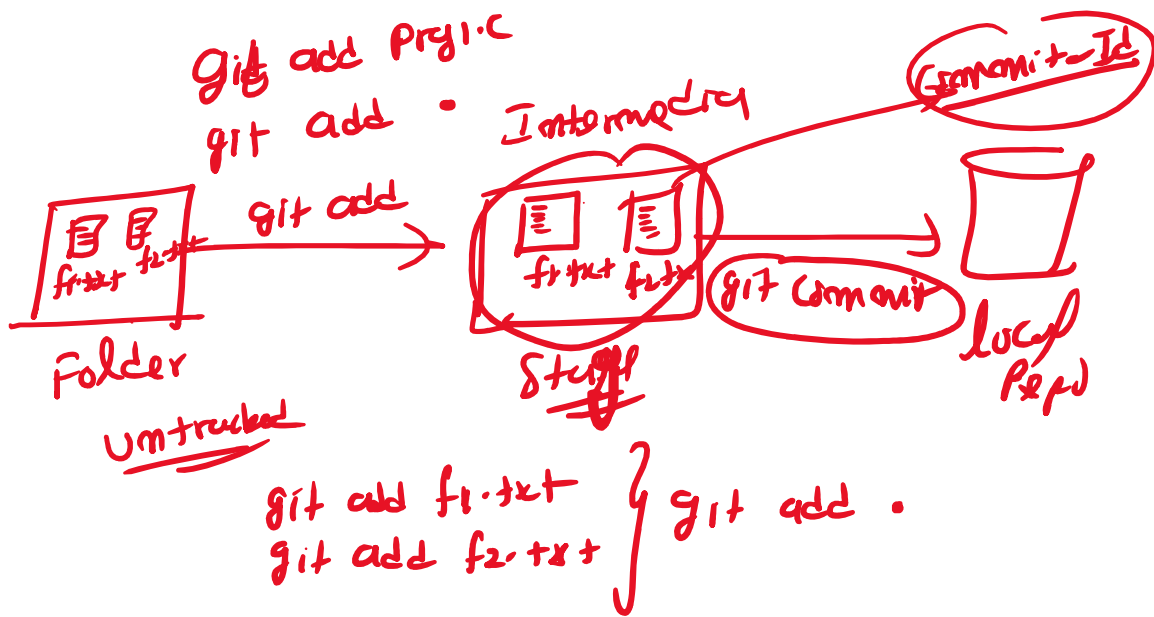 git add Prg1.c
git add .
Intermediary
Commit-Id
git add
f1.txt
f2.txt
f1.txt
f2.tx
git commit
Folder
local
Repo
untracked
git add f1.txt
git add f2.txt
git add .